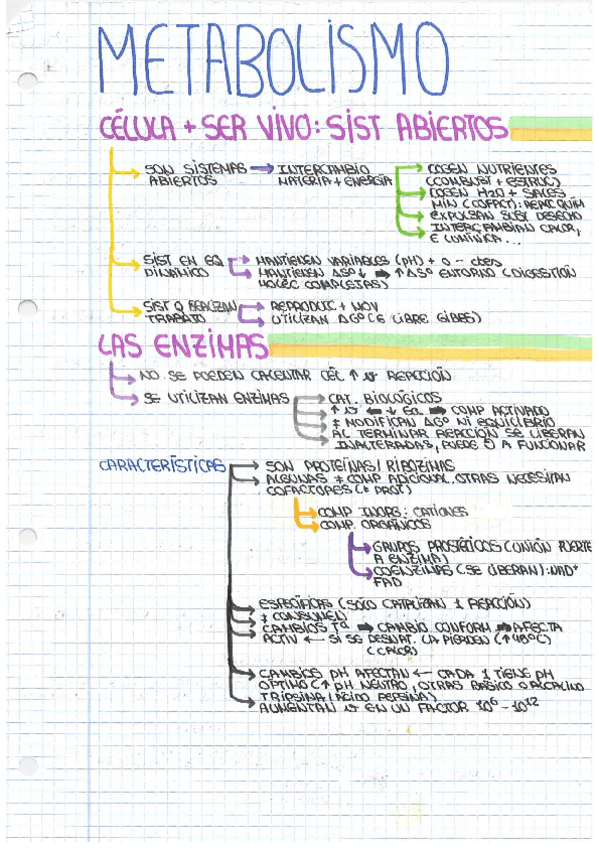 METABOLISMO
CÉLULA + SER VIVO: SIST ABIERTOS
SON SISTEMAS → INTERCAMBIO
ABIERTOS MATERIA + ENERGÍA
COGEN NUTRIENTES
(COMBUST + ESTRUC)
COGEN H2O + SALES
MIN (COFACT): REACC QUIM
EXPULSAN SUST DESECHO
INTERCAMBIAN CALOR,
E LUMÍNICA...
SIST EN EQ
DINÁMICO
MANTIENEN VARIABLES (PH) + O - CTES
MANTIENEN ΔSº ↓ → ↑ΔSº ENTORNO (DIGESTIÓN
MOLÉC COMPLEJAS)
SIST Q REALIZAN
TRABAJO
REPRODUC + MOV
UTILIZAN ΔGº (E LIBRE GIBBS)
LAS ENZIMAS
NO SE PUEDEN CALENTAR CÉL ↑ V REACCIÓN
SE UTILIZAN ENZIMAS
CAT. BIOLÓGICOS
↑ V ← ↓ Ea ➡ COMP ACTIVADO
MODIFICAN ΔGº NI EQUILIBRIO
AL TERMINAR REACCIÓN SE LIBERAN
INALTERADAS, PUEDE A FUNCIONAR
CARACTERÍSTICAS
SON PROTEÍNAS / RIBOZIMAS
ALGUNAS COMP ADICIONAL. OTRAS NECESITAN
COFACTORES ( PROT)
COMP INORG: CATIONES
COMP. ORGÁNICOS
GRUPOS PROSTÉTICOS (UNIÓN FUERTE
A ENZIMA)
COENZIMAS (SE LIBERAN): NAD+
FAD
ESPECÍFICAS (SÓLO CATALIZAN 1 REACCIÓN)
CONSUMEN
CAMBIOS Tª ➡ CAMBIO CONFORM ➡ AFECTA
ACTIV ← SI SE DESNAT. LA PIERDEN (↑40ºC)
(CALOR)
CAMBIOS PH AFECTAN ← CADA 1 TIENE PH
ÓPTIMO (↑ PH NEUTRO, OTRAS BÁSICO O ALCALINO
TRIPSINA / ÁCIDO PEPSINA)
AUMENTAN V EN UN FACTOR 10⁶ - 10¹²